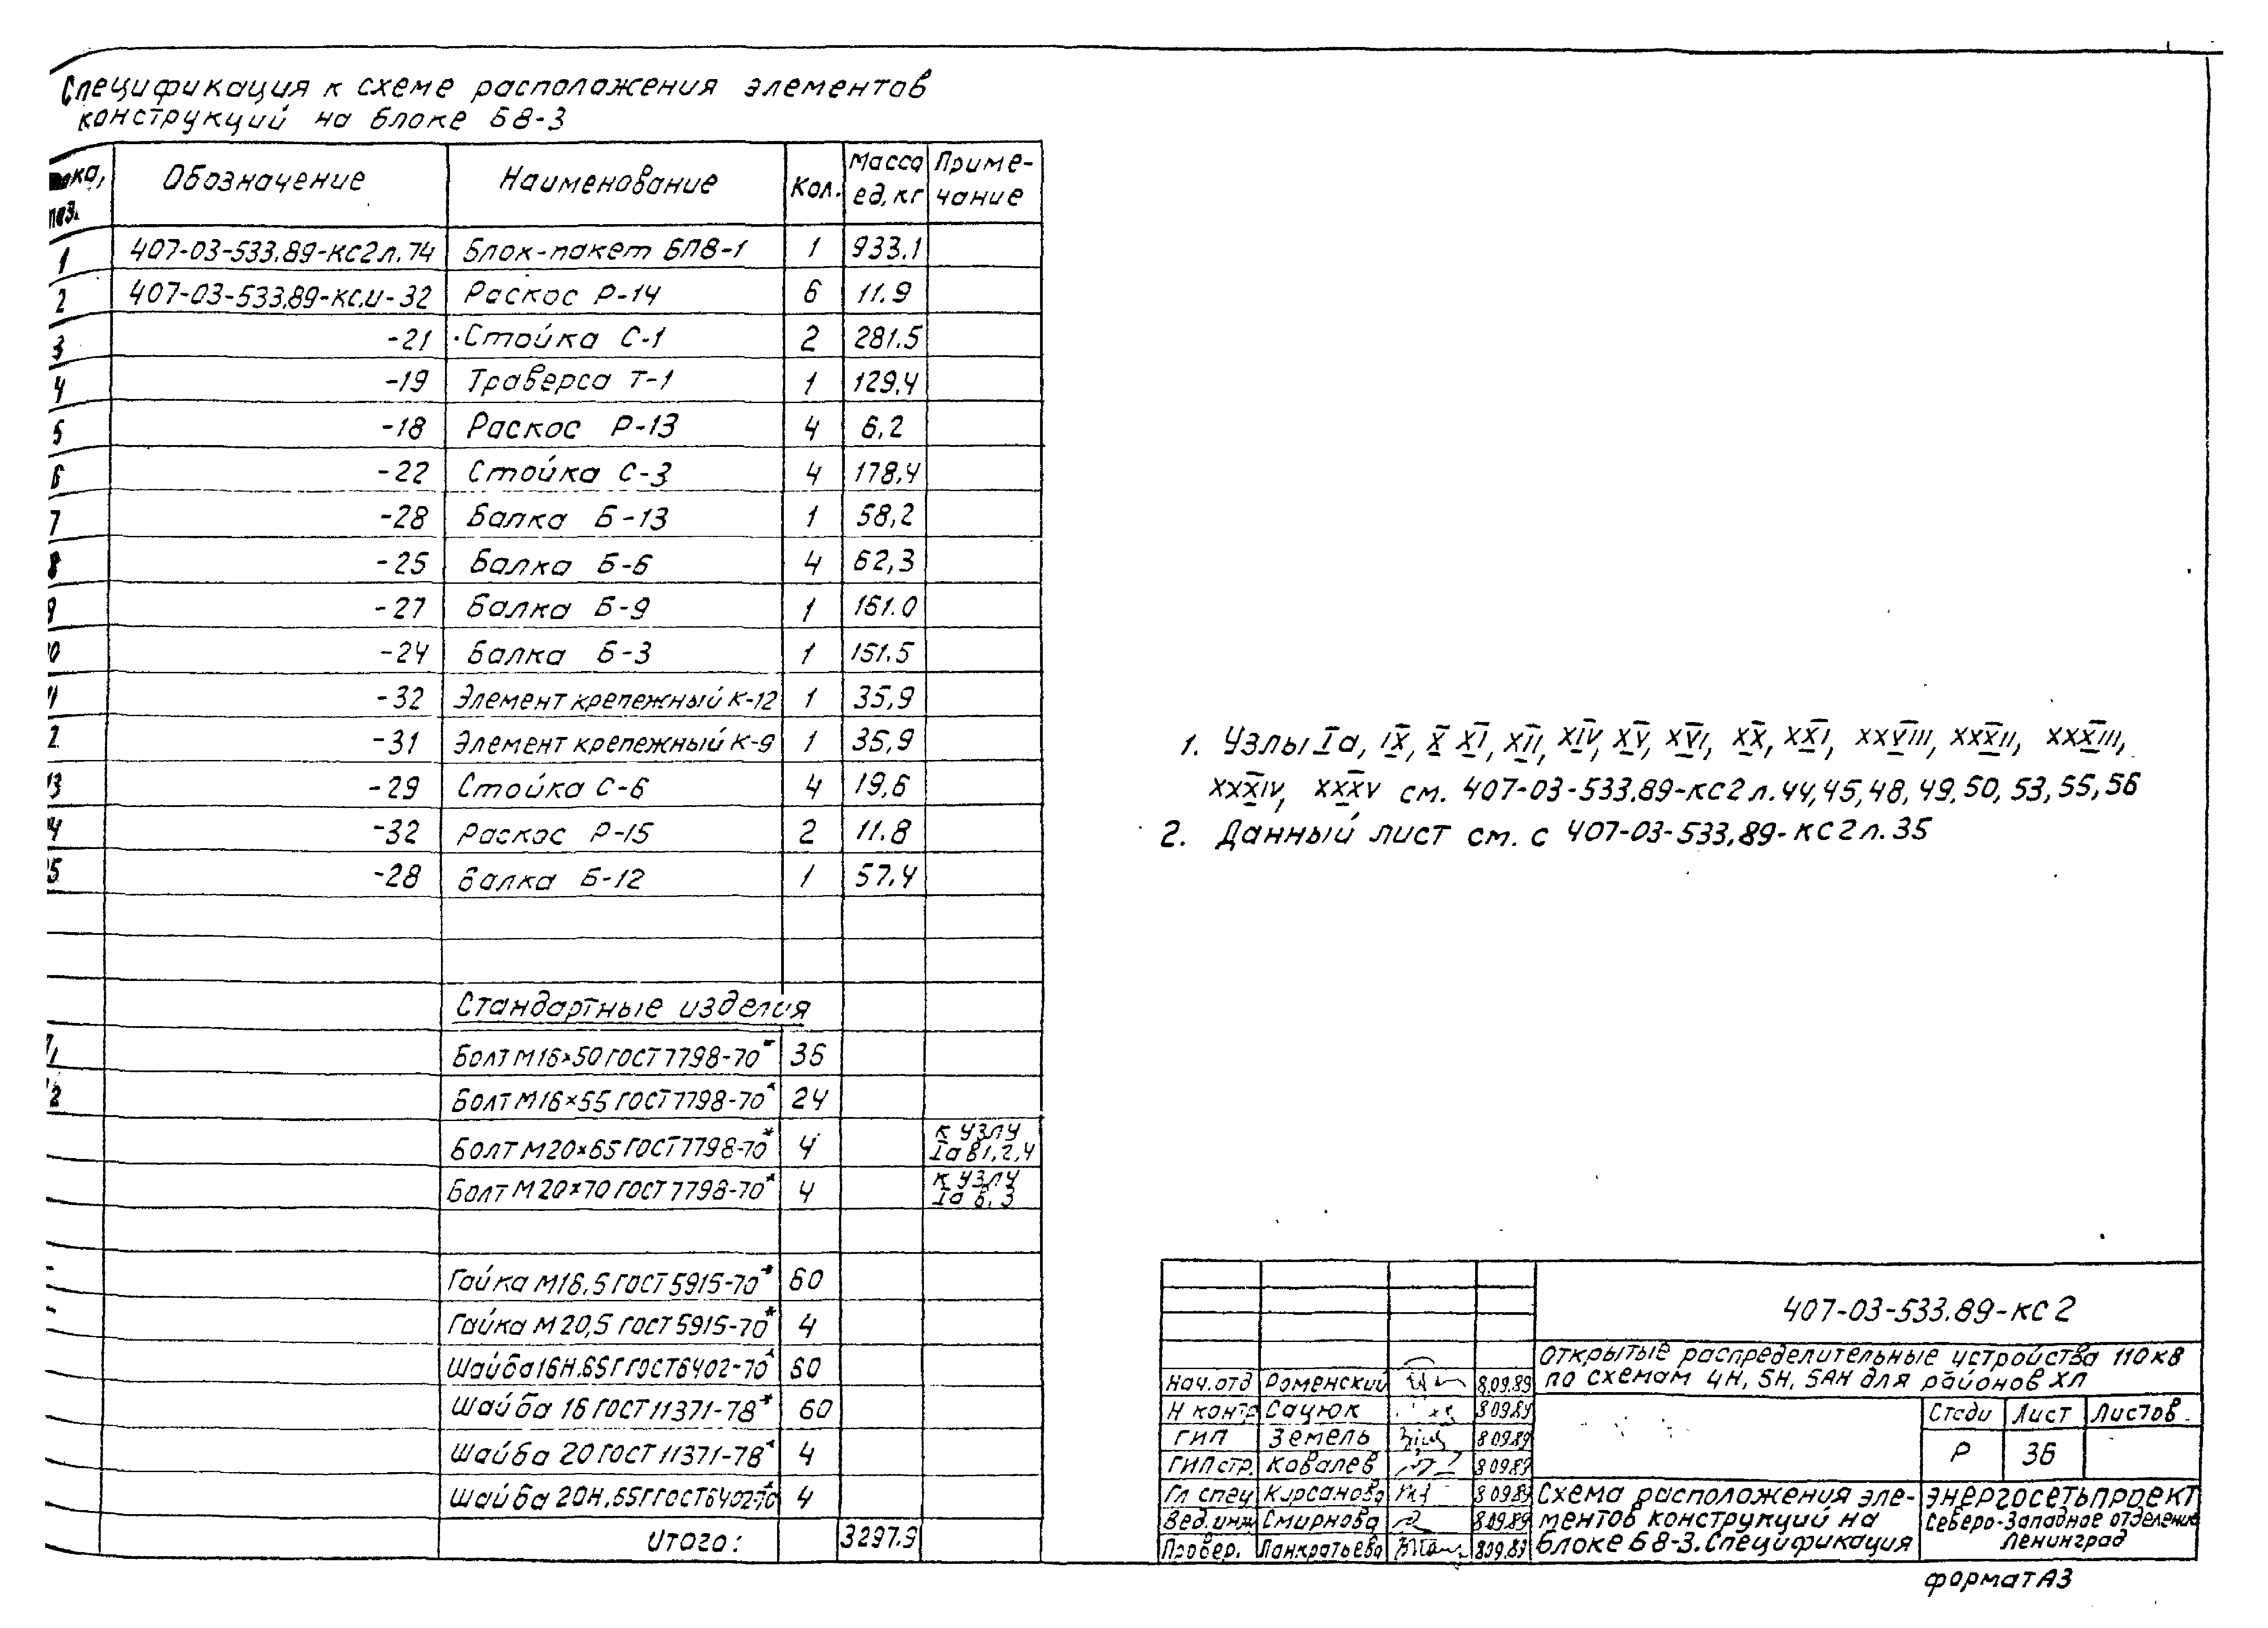 Спецификация к схеме расположения элементов
конструкций на блоке Б8-3
Обозначение Наименование Кол. Масса ед, кг Приме-чание
поз.
1 407-03-533.89-КС2л.74 Блок-пакет БП8-1 1 933.1
2 407-03-533.89-КС.И-32 Раскос Р-14 6 11.9
3 -21 Стойка С-1 2 281.5
4 -19 Траверса Т-1 1 129,4
5 -18 Раскос Р-13 4 6,2
6 -22 Стойка С-3 4 178,4
7 -28 Балка Б-13 1 58,2
8 -25 Балка Б-6 4 62,3
9 -27 Балка Б-9 1 161.0
10 -24 Балка Б-3 1 151.5
11 -32 Элемент крепежный К-12 1 35,9
12 -31 Элемент крепежный К-9 1 35,9
13 -29 Стойка С-6 4 19,6
14 -32 Раскос Р-15 2 11.8
15 -28 Балка Б-12 1 57.4
Стандартные изделия
Болт М16×50 ГОСТ 7798-70* 36
Болт М16×55 ГОСТ 7798-70* 24
Болт М20×65 ГОСТ 7798-70* 4 к узлу Iа В1,2,4
Болт М20×70 ГОСТ 7798-70* 4 к узлу Iа
Гайка М16,5 ГОСТ 5915-70* 60
Гайка М20,5 ГОСТ 5915-70* 4
Шайба 16Н.65Г ГОСТ 6402-70* 60
Шайба 16 ГОСТ 11371-78* 60
Шайба 20 ГОСТ 11371-78* 4
Шайба 20Н.65Г ГОСТ 6402-70 4
Итого: 3297.9
1. Узлы Iа, IX, X XI, XII, XIV, XV, XVI, XX, XXI, XXVIII, XXXII, XXXIII,
XXXIV, XXXV см. 407-03-533.89-КС2 л.44,45,48,49,50,53,55,56
2. Данный лист см. с 407-03-533.89-КС2 л.35
407-03-533.89-КС2
Открытые распределительные устройства 110кв
по схемам 4Н, 5Н, 5АН для районов ХЛ
Нач.отд Роменский 8.09.89
Н контр Сацюк 8 09.89
ГИП Земель 8 09.89
ГИП стр. Ковалев 8 09.89
Гл спец Кирсанова 8 09.89
Вед.инж Смирнова 8.09.89
Провер. Панкратьева 8.09.89
Стади Лист Листов
Р 36
Схема расположения эле-
ментов конструкций на
блоке Б8-3. Спецификация
Энергосетьпроект
Северо-Западное отделение
Ленинград
формат А3